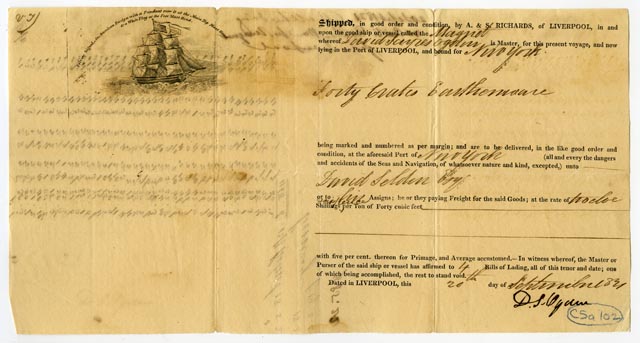 Shipped, in good order and condition, by A. & S. RICHARDS, of LIVERPOOL, in and
upon the good ship or vessel called the Magnet
whereof David is Master, for this present voyage, and now
lying in the Port of LIVERPOOL, and bound for New York
Forty Crates Earthenware
being marked and numbered as per margin; and are to be delivered, in the like good order and
condition, at the aforesaid Port of New York (all and every the dangers
and accidents of the Seas and Navigation, of whatsoever nature and kind, excepted,) unto
David Selden Esq
or to his Assigns; he or they paying Freight for the said Goods; at the rate of twelve
Shillings per Ton of Forty cubic feet
with five per cent. thereon for Primage, and Average accustomed.—In witness whereof, the Master or
Purser of the said ship or vessel has affirmed to 4 Bills of Lading, all of this tenor and date; one
of which being accomplished, the rest to stand void.
Dated in LIVERPOOL, this 20th day of September
D. S. Ogden
CSa 102